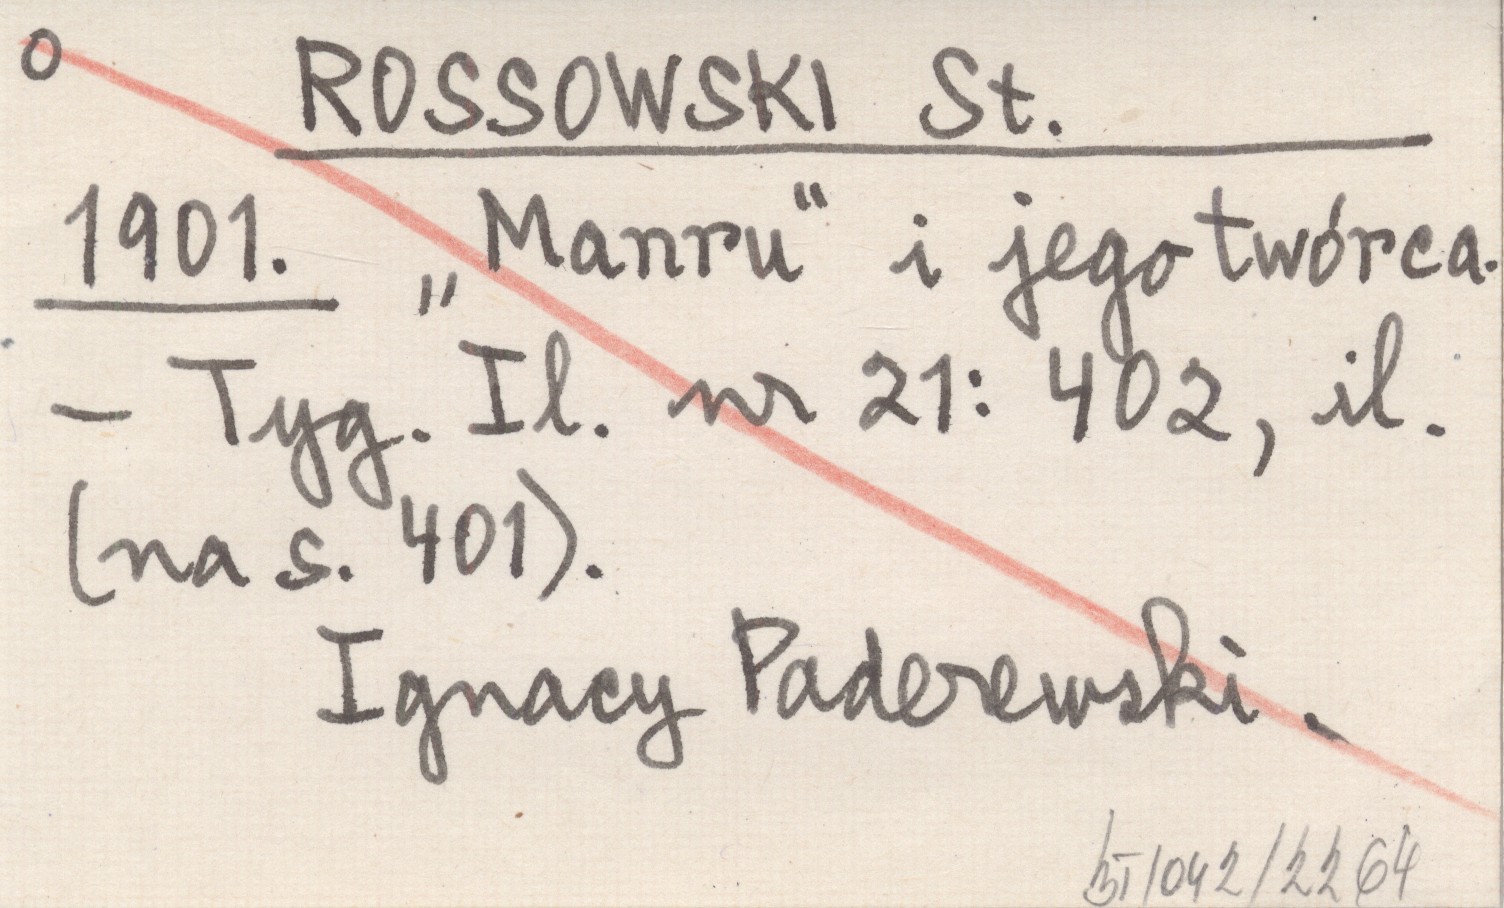 o ROSSOWSKI St.
1901. „Manru" i jego twórca.
– Tyg. Il. nr 21: 402, il.
(na s. 401).
Ignacy Paderewski.
/042/2264